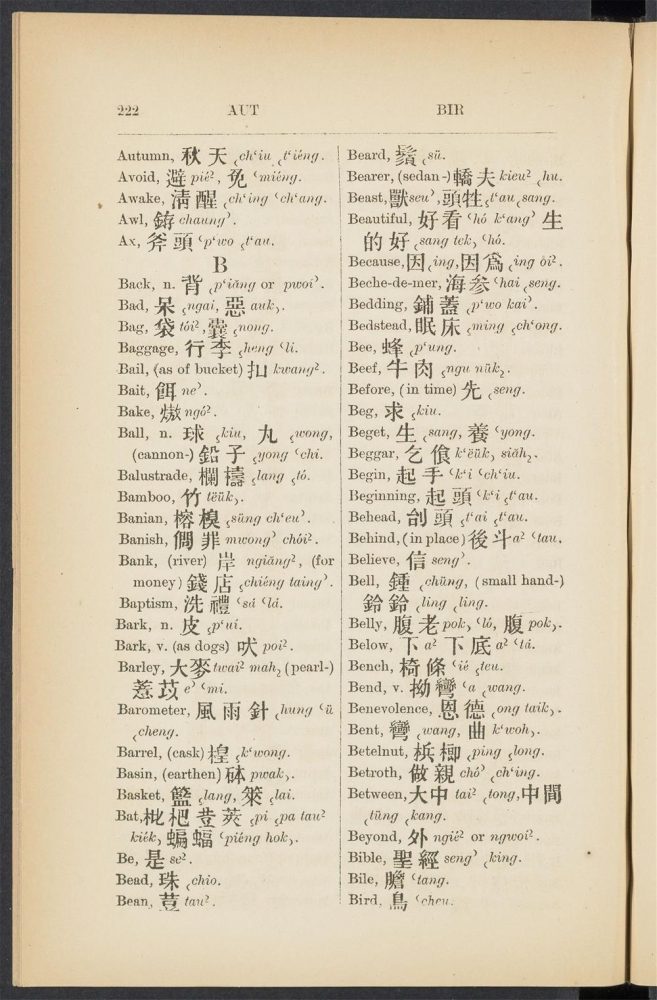 222 AUT BIR
Autumn, 秋 天 ˛chʻiu ˛tʻiéng.
Avoid, 避 pié², 免 ʿmiéng.
Awake, 清 醒 ˛chʻing ʿchʻang.
Awl, chaungʾ.
Ax, 斧 頭 ʿpʻwo ˛tʻau.
B
Back, n. 背 ˛pʻiăng or pwoiʾ.
Bad, 呆 ˛ngai, 惡 auk˛.
Bag, 袋 tói², 囊 ˛nong.
Baggage, 行 李 ˛heng ʿli.
Bail, (as of bucket) 扣 kwang².
Bait, 餌 neʾ.
Bake, 熬 ngó².
Ball, n. 球 ˛kiu, 丸 ˛wong,
(cannon-) 鉛 子 ˛yong ʿchi.
Balustrade, 欄 檮 ˛lang ˛tó.
Bamboo, 竹 tëük˛.
Banian, 榕 ˛süng chʻeuʾ.
Banish, 問 罪 mwongʾ chói².
Bank, (river) 岸 ngiăng², (for
money) 錢 店 ˛chiéng taingʾ.
Baptism, 洗 禮 ʿsá ʿlá.
Bark, n. 皮 ˛pʻui.
Bark, v. (as dogs) 吠 poi².
Barley, 大 麥 twai² mah˛ (pearl-)
薏 苡 eʾ ʿmi.
Barometer, 風 雨 針 ˛hung ʿü
˛cheng.
Barrel, (cask) ˛kʻwong.
Basin, (earthen) 砵 pwak˛.
Basket, 籃 ˛lang, 箂 ˛lai.
Bat, 枇 杷 荳 莢 ˛pi ˛pa tau²
kiék˛ 蝙 蝠 ʿpiéng hok˛.
Be, 是 se².
Bead, 珠 ˛chio.
Bean, 荳 tau².
Beard, 鬚 ˛sü.
Bearer, (sedan-) 轎 夫 kieu² ˛hu.
Beast, 獸 seuʾ, 頭 牲 ˛tʻau ˛sang.
Beautiful, 好 看 ʿhó kʻangʾ 生
的 好 ˛sang tek˛ ʿhó.
Because, 因 ˛ing, 因 爲 ˛ing ôi².
Beche-de-mer, 海 参 ʿhai ˛seng.
Bedding, 鋪 蓋 ˛pʻwo kaiʾ.
Bedstead, 眠 床 ˛ming ˛chʻong.
Bee, 蜂 ˛pʻung.
Beef, 牛 肉 ˛ngu nük˛.
Before, (in time) 先 ˛seng.
Beg, 求 ˛kiu.
Beget, 生 ˛sang, 養 ʿyong.
Beggar, 乞 食 kʻëük˛ siăh˛.
Begin, 起 手 ʿkʻi ʿchʻiu.
Beginning, 起 頭 ʿkʻi ˛tʻau.
Behead, 刣 頭 ˛tʻai ˛tʻau.
Behind, (in place) 後 斗 a² ʿtau.
Believe, 信 sengʾ.
Bell, 鍾 ˛chüng, (small hand-)
鈴 鈴 ˛ling ˛ling.
Belly, 腹 老 pok˛ ʿló, 腹 pok˛.
Below, 下 a² 下 底 a² ʿtá.
Bench, 椅 條 ʿié ˛teu.
Bend, v. 拗 彎 ʿa ˛wang.
Benevolence, 恩 德 ˛ong taik˛.
Bent, 彎 ˛wang, 曲 kʻwoh˛.
Betelnut, 梹 榔 ˛ping ˛long.
Betroth, 做 親 chóʾ ˛chʻing.
Between, 大 中 tai² ˛tong, 中 間
˛tüng ˛kang.
Beyond, 外 ngié² or ngwoi².
Bible, 聖 經 sengʾ ˛king.
Bile, 膽 ʿtang.
Bird, 鳥 ʿcheu.